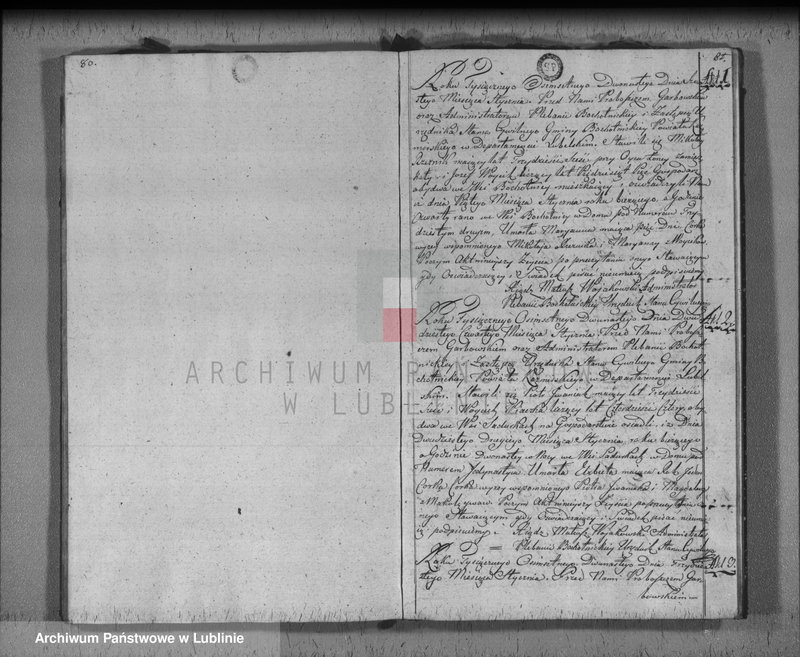 80.
81.
№ 1
Roku Tysiącznego Osmsetnego Dwunastego Dnia
stego Miesiąca Stycznia. Przed Nami Proboszczem Garbowskim
oraz Administratorem Plebanii Bochotnickiey i Zastępcą U
rzędnika Stanu Cywilnego Gminy Bochotnickiey Powiatu Kazi
mierskiego w Departamencie Lubelskim. Stawili się Mikołay
maiący lat Trzydzieści Sześć przy Oycu swoim zamiesz
kały i Jozef liczący lat Pięćdziesiąt Gospodarz
obydwa we Wsi Bochotnicy mieszkaiący i oswiadczyli Nam
iż dnia Piątego Miesiąca Stycznia roku bieżącego, o Godzinie
Czwartey rano we Wsi Bochotnicy w domu pod Numerem Trzy
dziestym drugim, Umarła Maryanna maiąca Dni Corka
wyżey wspomnionego Mikołaja i Maryanny
Poczym Akt ninieyszy Zeyścia po przeczytaniu onego Stawaiącym
gdy Oswiadczaiący i Swiadek pisać nieumieią podpisalismy
Xiądz Mateusz Woyakowski Administrator
Plebanii Bochotnickiey Urzędnik Stanu Cywilnego
№ 2.
Roku Tysiącznego Osmsetnego Dwunastego Dnia Dwu
dziestego Czwartego Miesiąca Stycznia Przed Nami Probosz
czem Garbowskiem oraz Administratorem Plebanii Bochot
nickiey i Zastępcą Urzędnika Stanu Cywilnego Gminy Bo
chotnickiey Powiatu Kazimirskiego w Departamencie Lubel
skim. Stawili się Piotr Iwaniak maiący lat Trzydzieści
Sześć i Woyciech liczący lat Czterdzieści Cztery oby
dwa we Wsi Sadurkach na Gospodarstwie osiedli, iż Dnia
Dwudziestego Drugiego Miesiąca Stycznia, roku bieżącego
o Godzinie Dwunastey w Nocy we Wsi Sadurkach w Domu pod
Numerem Jedynastym Umarła Elżbieta maiąca Rok jeden
Corka Corka wyżey wspomnionego Piotra Iwaniaka i Magdaleny
Poczym Akt ninieyszy Zeyścia po przeczytaniu o
nego Stawaiącym gdy Oswiadczaiący i Swiadek pisać nieumie
ią podpisalismy. Xiądz Mateusz Woyakowski Administrator
Plebanii Bochotnickiey Urzędnik Stanu Cywilnego
№ 3.
Roku Tysiącznego Osmsetnego Dwunastego Dnia Trzydzie
stego Miesiąca Stycznia. Przed Nami Proboszczem Gar
bowskiem
ARCHIWUM PAŃSTWOWE
W LUBLINIE
Archiwum Państwowe w Lublinie